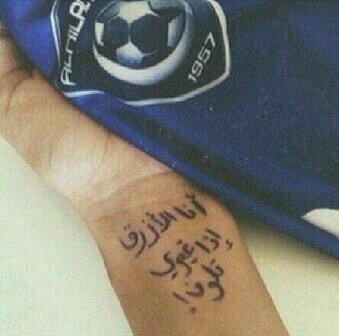 ALHILAL
1957
أنا الأزرق
إذا غيري
تلون!